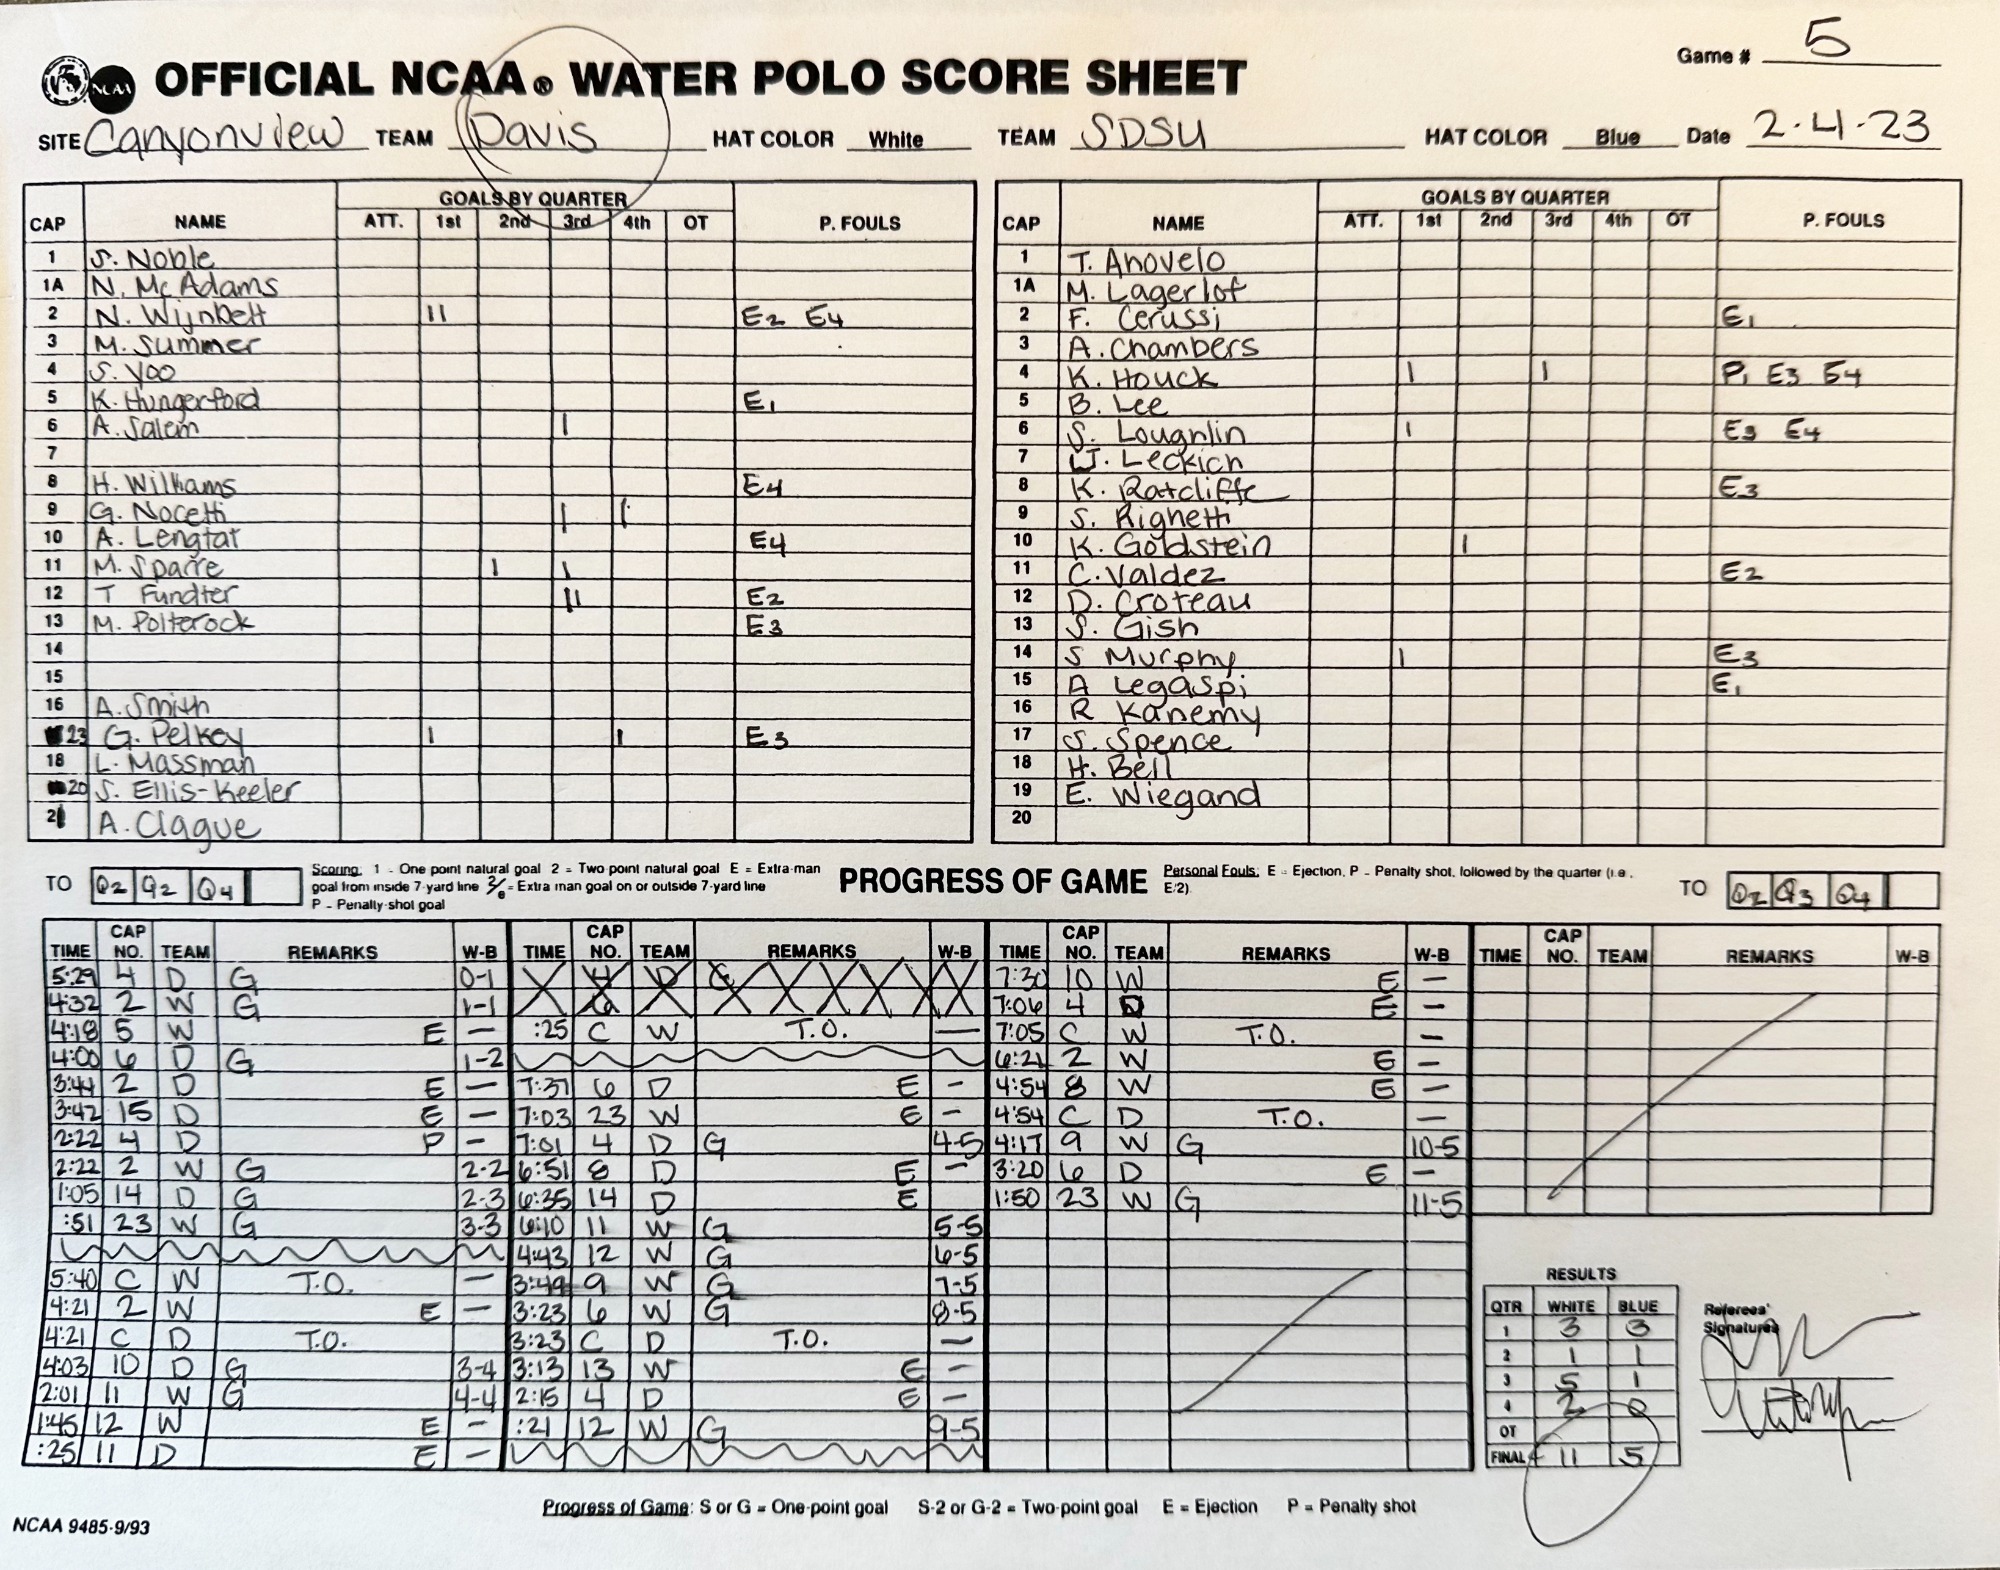 Game # 5
NCAA OFFICIAL NCAA® WATER POLO SCORE SHEET
SITE Canyonview TEAM Davis HAT COLOR White TEAM SDSU HAT COLOR Blue Date 2.4.23
CAP NAME GOALS BY QUARTER P. FOULS
ATT. 1st 2nd 3rd 4th OT
1 S. Noble
1A N. McAdams
2 N. Wijnbelt II E2 E4
3 M. Summer
4 S. Yoo
5 K. Hungerford E1
6 A. Salem I
7
8 H. Williams E4
9 G. Nocetti I I
10 A. Lengtat E4
11 M. Sparre I I
12 T Fundter II E2
13 M. Polterock E3
14
15
16 A. Smith
23 G. Pelkey I I E3
18 L. Massman
20 S. Ellis-Keeler
21 A. Clague
CAP NAME GOALS BY QUARTER P. FOULS
ATT. 1st 2nd 3rd 4th OT
1 T. Anovelo
1A M. Lagerlof
2 F. Cerussi E1
3 A. Chambers
4 K. Houck I I P1 E3 E4
5 B. Lee
6 S. Loughlin I E3 E4
7 W. Leckich
8 K. Ratcliffe E3
9 S. Righetti
10 K. Goldstein I
11 C. Valdez E2
12 D. Croteau
13 S. Gish
14 S Murphy I E3
15 A Legaspi E1
16 R Kanemy
17 S. Spence
18 H. Bell
19 E. Wiegand
20
TO Q2 Q2 Q4
Scoring: 1 - One point natural goal 2 = Two point natural goal E = Extra-man
goal from inside 7-yard line 2/e = Extra man goal on or outside 7-yard line
P - Penalty-shot goal
PROGRESS OF GAME
Personal Fouls: E - Ejection, P - Penalty shot, followed by the quarter (i.e.,
E/2).
TO Q2 Q3 Q4
TIME CAP NO. TEAM REMARKS W-B
5:29 4 D G 0-1
4:32 2 W G 1-1
4:18 5 W E —
4:00 6 D G 1-2
3:44 2 D E —
3:42 15 D E —
2:22 4 D P -
2:22 2 W G 2-2
1:05 14 D G 2-3
:51 23 W G 3-3
5:40 C W T.O. —
4:21 2 W E —
4:21 C D T.O.
4:03 10 D G 3-4
2:01 11 W G 4-4
1:45 12 W E -
:25 11 D E —
TIME CAP NO. TEAM REMARKS W-B
4 D G
6
:25 C W T.O. —
7:37 6 D E -
7:03 23 W E -
7:01 4 D G 4-5
6:51 8 D E -
6:35 14 D E
6:10 11 W G 5-5
4:43 12 W G 6-5
3:49 9 W G 7-5
3:23 6 W G 8-5
3:23 C D T.O. —
3:13 13 W E -
2:15 4 D E —
:21 12 W G 9-5
TIME CAP NO. TEAM REMARKS W-B
7:30 10 W E —
7:06 4 D E —
7:05 C W T.O. —
6:21 2 W E —
4:54 8 W E —
4:54 C D T.O. —
4:17 9 W G 10-5
3:20 6 D E —
1:50 23 W G 11-5
TIME CAP NO. TEAM REMARKS W-B
RESULTS
QTR WHITE BLUE
1 3 3
2 1 1
3 5 1
4 2 0
OT
FINAL 11 5
Referees'
Signatures
Progress of Game: S or G = One-point goal S-2 or G-2 = Two-point goal E = Ejection P = Penalty shot
NCAA 9485-9/93